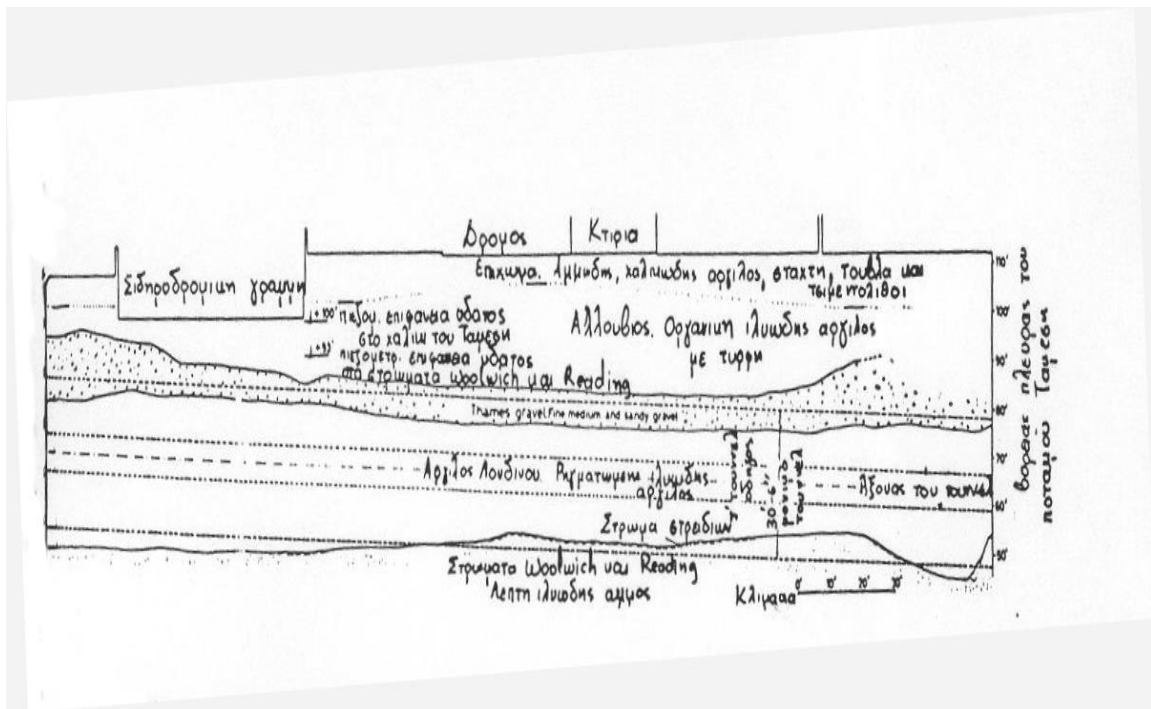 Δρομος
Κτιρια
Σιδηροδρομικη γραμμη
Επιχωμα. Αμμωδης, χαλικωδης αργιλος, σταχτη, τουβλα και
τσιμεντολιθοι
+100' πιεζομ. επιφανεια υδατος
στο χαλικι του Ταμεση
+93'
πιεζομετρ. επιφανεια υδατος
στα στρωματα Woolwich και Reading
Αλλουβιος. Οργανικη ιλυωδης αργιλος
με τυρφη
Thames gravel. Fine medium and sandy gravel
Αργιλος Λονδινου. Ρηγματωμενη ιλυωδης
αργιλος
τουννελ
οδηγος
30'-6"
τουννελ
Αξονας του τουννελ
Στρωμα στρειδιων
Στρωματα Woolwich και Reading
Λεπτη ιλυωδης αμμος
Κλιμακα
0' 10' 20' 30'
110'
100'
90'
80'
70'
60'
50'
βορειας πλευρας του
ποταμιου Ταμεση